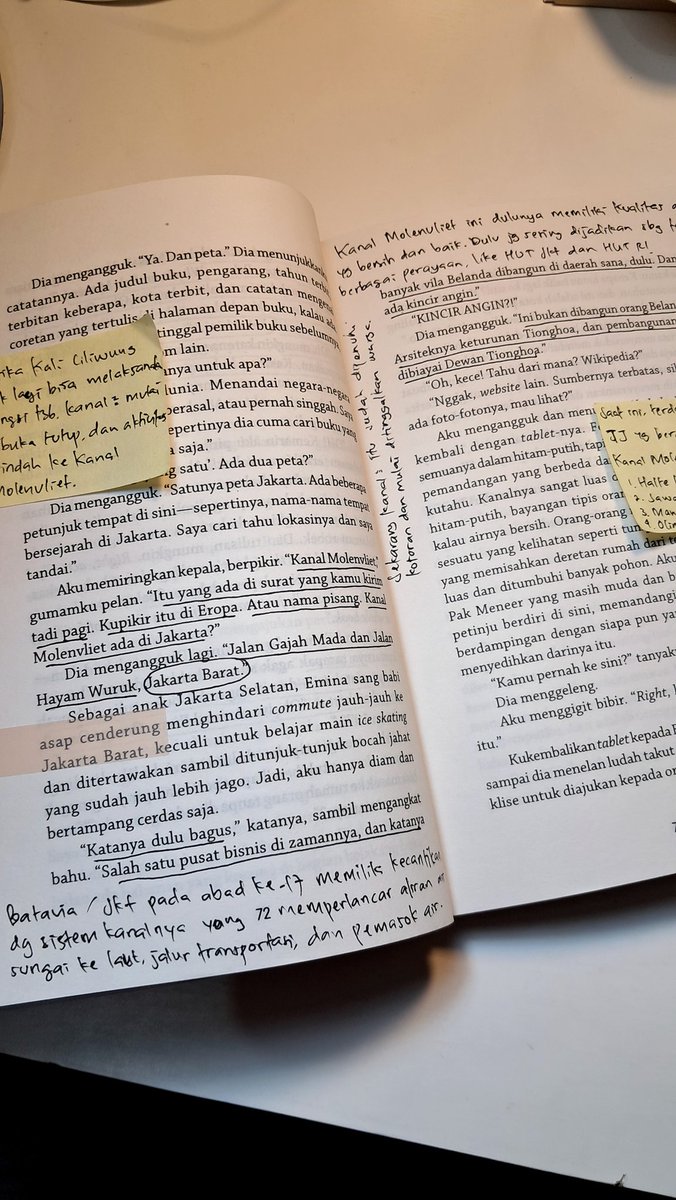 Dia mengangguk. "Ya. Dan peta." Dia menunjukkan
catatannya. Ada judul buku, pengarang, tahun terbit,
terbitan keberapa, kota terbit, dan catatan mengenai
coretan yang tertulis di halaman depan buku, kalau ada
tinggal pemilik buku sebelumnya
m lain.
nya untuk apa?"
unia. Menandai negara-negara
berasal, atau pernah singgah. Saya
sepertinya dia cuma cari buku yang
a saja."
g satu'. Ada dua peta?"
Dia mengangguk. "Satunya peta Jakarta. Ada beberapa
petunjuk tempat di sini—sepertinya, nama-nama tempat
bersejarah di Jakarta. Saya cari tahu lokasinya dan saya
tandai."
Aku memiringkan kepala, berpikir. "Kanal Molenvliet,"
gumamku pelan. "Itu yang ada di surat yang kamu kirim
tadi pagi. Kupikir itu di Eropa. Atau nama pisang. Kanal
Molenvliet ada di Jakarta?"
Dia mengangguk lagi. "Jalan Gajah Mada dan Jalan
Hayam Wuruk, Jakarta Barat."
Sebagai anak Jakarta Selatan, Emina sang babi
asap cenderung menghindari commute jauh-jauh ke
Jakarta Barat, kecuali untuk belajar main ice skating
dan ditertawakan sambil ditunjuk-tunjuk bocah jahat
yang sudah jauh lebih jago. Jadi, aku hanya diam dan
bertampang cerdas saja.
"Katanya dulu bagus," katanya, sambil mengangkat
bahu. "Salah satu pusat bisnis di zamannya, dan katanya
Batavia / Jkt pada abad ke-17 memiliki kecantikan
dg sistem kanalnya yang 72 memperlancar aliran air
sungai ke laut, jalur transportasi, dan pemasok air.
ika Kali Ciliwung
k lagi bisa melaksanakan
ngsi tsb. kanal² mulai
buka tutup, dan aktivitas
indah ke Kanal
Molenvliet.
Sekarang kanal² itu sudah dipenuhi
kotoran dan mulai ditinggalkan warga.
Kanal Molenvliet ini dulunya memiliki kualitas a
yg bersih dan baik. Dulu jg sering dijadikan sbg t
berbagai perayaan, like HUT Jkt dan HUT RI.
banyak vila Belanda dibangun di daerah sana, dulu. Dan
ada kincir angin."
"KINCIR ANGIN?!"
Dia mengangguk. "Ini bukan dibangun orang Belan
Arsiteknya keturunan Tionghoa, dan pembangunan
dibiayai Dewan Tionghoa."
"Oh, kece! Tahu dari mana? Wikipedia?"
"Nggak, website lain. Sumbernya terbatas, si
ada foto-fotonya, mau lihat?"
Aku mengangguk dan men
kembali dengan tablet-nya. F
semuanya dalam hitam-putih, tap
pemandangan yang berbeda da
kutahu. Kanalnya sangat luas d
hitam-putih, bayangan tipis oran
kalau airnya bersih. Orang-orang
sesuatu yang kelihatan seperti tun
yang memisahkan deretan rumah dari te
luas dan ditumbuhi banyak pohon. Aku
Pak Meneer yang masih muda dan b
petinju berdiri di sini, memandangi
berdampingan dengan siapa pun ya
menyedihkan darinya itu.
"Kamu pernah ke sini?" tanyaku
Dia menggeleng.
Aku menggigit bibir. "Right,
itu."
Kukembalikan tablet kepada
sampai dia menelan ludah takut
klise untuk diajukan kepada or
7
Saat ini, terda
JJ yg ber
Kanal Mol
1. Halte
2. Jawa
3. Man
4. Olim